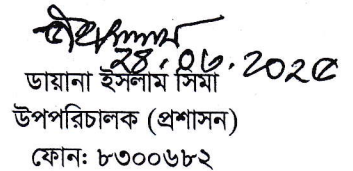 ২৪.০৬.২০২৫
ডায়ানা ইসলাম সিমা
উপপরিচালক (প্রশাসন)
ফোন: ৮৩০০৬৮২